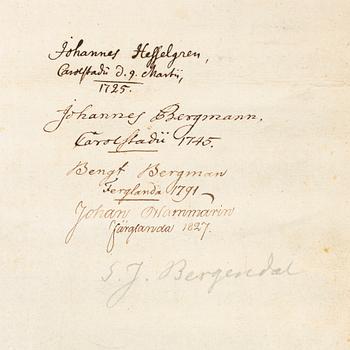 Johannes Hesselgren,
Carolstadii d. 9. Martii,
1725.
Johannes Bergmann.
Carolstadii 1745.
Bengt Bergman
Ferglanda 1791
Johan Wammarin
Färglanda 1827.
S. J. Bergendal